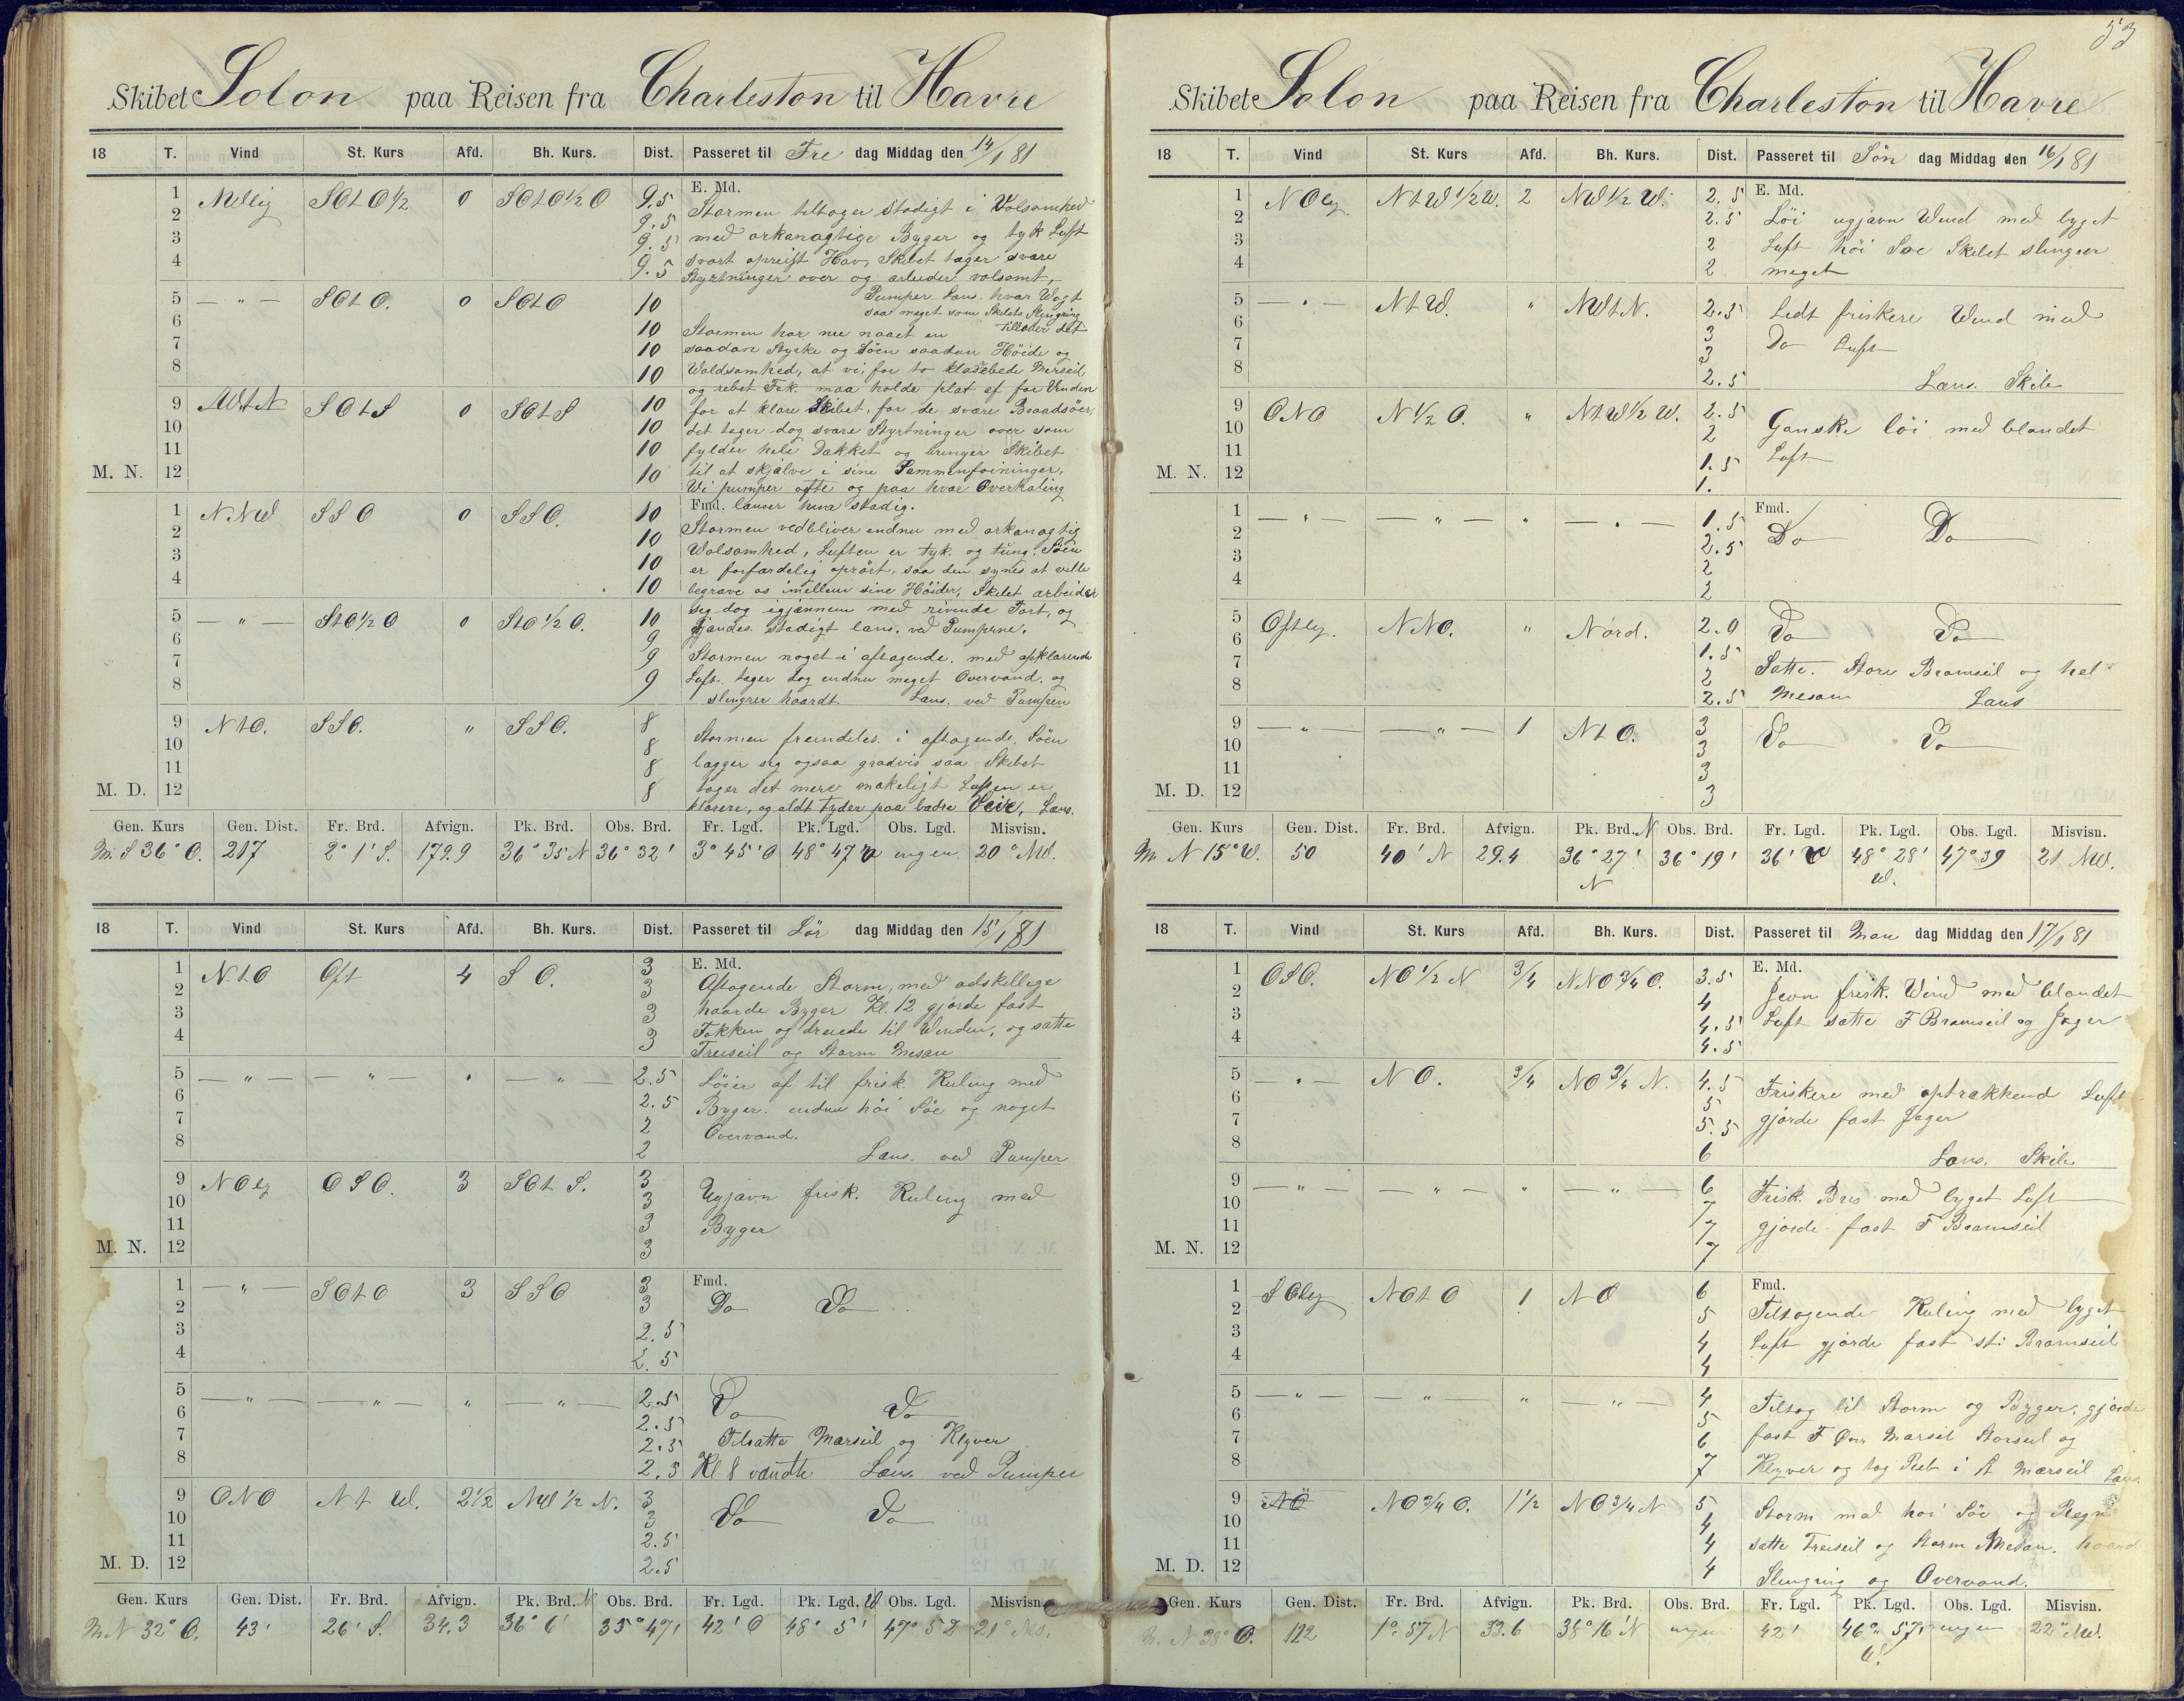 53
Skibet Solon paa Reisen fra Charleston til Havre
18 T. Vind St. Kurs Afd. Bh. Kurs. Dist. Passeret til Fre dag Middag den 14/1 81
1 NWlig SOtO 1/2 0 SOtO 1/2 O 9.5 E. Md.
2 9.5 Stormen tiltager Stadigt i Volsomhed
3 9.5 med orkanagtige Byger og tyk Luft
4 9.5 svart opreist Hav, Skibet tager svare
Styrtninger over og arbeider volsomt,
5 — " — SOtO. 0 SOtO 10 Pumper Læns. hvar Vagt
saa meget som Skibets Slingring
6 10 Stormen har nu naaet en tillader det
7 10 saadan Styrke og Söen saadan Höide og
8 10 Woldsomhed, at vi, for to klodsebede Merseil,
og rebet Fok. maa holde plat af for Vinden
9 SOtS 0 SOtS 10 for at klare Skibet, for de svare Braadsöer,
10 10 det tager dog svare Styrtninger over som
11 10 fylder hele Dakket og bringer Skibet
M. N. 12 10 til at skjalve i sine Sammenföininger,
Wi pumper ofte og paa hvar Overhaling
1 NNW SSO 0 SSO. 10 Fmd. lanser hun stadig.
2 10 Stormen vedbliver endnu med orkanagtig
3 10 Wolsomhed, Luften er tyk. og tung. Söen
4 10 er forfardelig oprört, saa den synes at ville
begrave os imellem sine Höider, Skibet arbeider
5 — " — StO 1/2 O 0 StO 1/2 O. 10 sig dog igjannem med rivende Fart, og
6 9 fjandes. stadigt lans. ved Pumperne.
7 9 Stormen noget i aftagende. med opklarende
8 9 Luft. tager dog endnu meget Overvand. og
slingrer haardt. Lans. ved Pumpen
9 NtO. SSO. " SSO. 8
10 8 Stormen fremdeles i aftagende. Söen
11 8 lagger sig ogsaa gradvis saa Skibet
M. D. 12 8 tager det mere makeligt Luften er
klarere, og aldt tyder paa badre Veir, Læns.
Gen. Kurs Gen. Dist. Fr. Brd. Afvign. Pk. Brd. Obs. Brd. Fr. Lgd. Pk. Lgd. Obs. Lgd. Misvisn.
M. S 36° O. 217 2° 1' S. 179.9 36° 35 N 36° 32' 3° 45' O 48° 47 W ingen. 20° NW.
18 T. Vind St. Kurs Afd. Bh. Kurs. Dist. Passeret til Lör dag Middag den 15/1 81
1 NtO Ost 4 SO. 3 E. Md.
2 3 Aftagende Storm, med adskellege
3 3 haarde Byger Kl. 12 gjorde fast
4 3 Fokken og dreiede til Winden, og satte
Treiseil og Storm Mesan
5 — " — — " — " — " — 2.5 Löier af til frisk. Kuling med
6 2.5 Byger. endnu höi Söe og noget
7 2 Overvand.
8 2 Læns. ved Pumper
9 NOlg OSO. 3 SOtS. 3
10 3 Ugjavn frisk. Kuling med
11 3 Byger
M. N. 12 3
1 — " — SOtO 3 SSO 3 Fmd.
2 3 Do Do
3 2.5
4 2.5
5 — " — — " — " — " — 2.5 Do Do
6 2.5
7 2.5 Tilsatte Marseil og Klyver
8 2.5 Kl 8 vendte Læns. ved Pumper
9 ONO NtW. 2 1/2 NW 1/2 N. 3
10 3 Do Do
11 2.5
M. D. 12 2.5
Gen. Kurs Gen. Dist. Fr. Brd. Afvign. Pk. Brd. N Obs. Brd. Fr. Lgd. Pk. Lgd. W Obs. Lgd. Misvisn.
M. N 32° O. 43' 26' S. 34.3 36° 6' 35° 47' 42' O 48° 5' 47° 52 21°
Skibet Solon paa Reisen fra Charleston til Havre
18 T. Vind St. Kurs Afd. Bh. Kurs. Dist. Passeret til Sön dag Middag den 16/1 81
1 NOlg. NtW 1/2 W. 2 NW 1/2 W. 2.5 E. Md.
2 2.5 Löi ugjavn Wind med byget
3 2 Luft höi Söe Skibet slingrer
4 2 meget
5 — " — NtW. " NWtN. 2.5 Ledt friskere Wind med
6 3 Do Luft
7 3
8 2.5 Læns. Skib
9 ONO N 1/2 O. " NtW 1/2 W. 2.5
10 2 Ganske löi med blandet
11 1.5 Luft
M. N. 12 1.
1 — " — — " — " — " — 1.5 Fmd.
2 2.5 Do Do
3 2
4 2
5 Ostlg. NNO. " Nord. 2.0 Do Do
6 1.5
7 2 Satte. Store Bramseil og hel
8 2.5 Mesan Lans
9 — " — — " — 1 NtO. 3 Do Do
10 3
11 3
M. D. 12 3
Gen. Kurs Gen. Dist. Fr. Brd. Afvign. Pk. Brd. N Obs. Brd. Fr. Lgd. Pk. Lgd. Obs. Lgd. Misvisn.
M N 15° W. 50 40' N 29.4 36° 27' N 36° 19' 36' W 48° 28' W. 47° 39 21 NW.
18 T. Vind St. Kurs Afd. Bh. Kurs. Dist. Passeret til Man dag Middag den 17/1 81
1 OSO. NO 1/2 N 3/4 NNO 3/4 O. 3.5 E. Md.
2 4 Jevn frisk. Wind med blandet
3 4.5 Luft satte F Bramseil og Jager
4 4.5
5 — " — NO. 3/4 NO 3/4 N. 4.5 Friskere med optrakkend Luft
6 5
7 5.5 gjorde fast Jager
8 6 Lans. Skib
9 — " — — " — " — " — 6 Frisk. Bris med byget Luft
10 7
11 7 gjorde fast F Bramseil
M. N. 12 7
1 SOlg NOtO 1 NO 6 Fmd.
2 5 Tiltagende Kuling med byget
3 4 Luft gjorde fast st: Bramseil
4 4
5 — " — — " — " — " — 4 Tiltog til Storm og Byger. gjorde
6 5
7 6 fast F Övre Marseil Storseil og
8 7 Klyver og tog Reb i St Marseil Læns
9 NO NO 3/4 O. 1 1/2 NO 3/4 N 5 Storm med hoi Söe og Regn
10 4
11 4 satte Treiseil og Storm Mesan. haard
M. D. 12 4 Slingring og Overvand.
Gen. Kurs Gen. Dist. Fr. Brd. Afvign. Pk. Brd. Obs. Brd. Fr. Lgd. Pk. Lgd. Obs. Lgd. Misvisn.
M. N 38° O. 122 1° 57 N 33.6 38° 16' N ingen 42' 46° 57' W. ingen 22° NW.